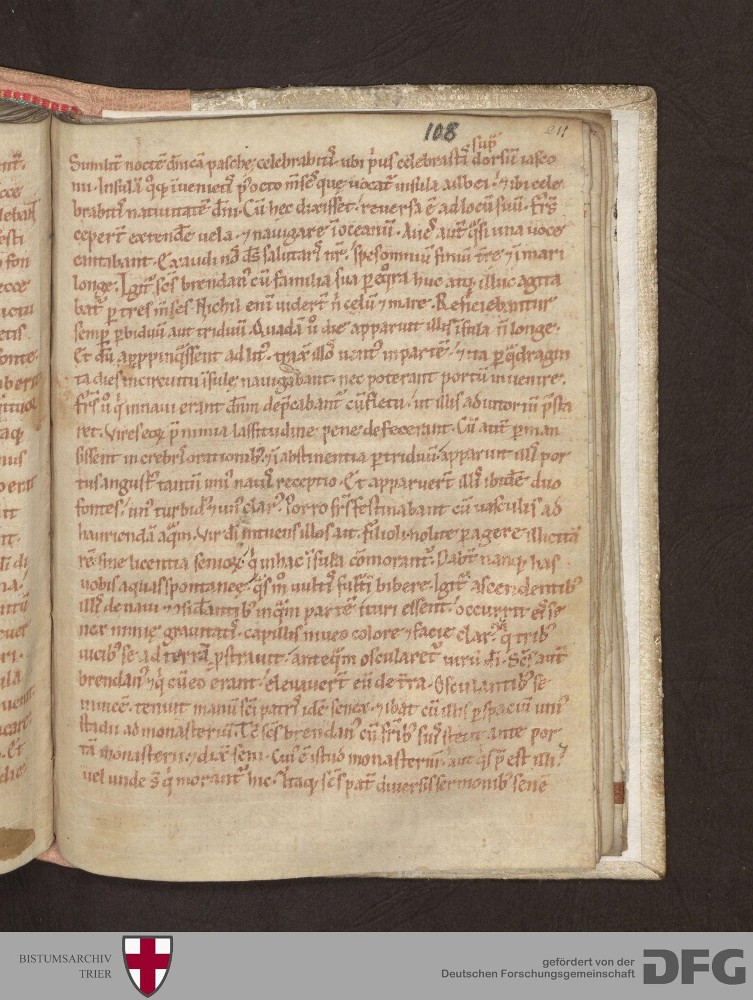 108
211
sup̄
Similit̄ noctē dn̄icā pasche, celebrabitis. ubi prius celebrasti. dorsū iasco
nii. Insulā q̊ꝫ inveniet̄ p̄ octo mēses que vocat̄ insula ailbei. ⁊ ibi cele
brabitis nativitatē dn̄i. Cū hec dixisset. reversa ē ad locū suū. Fr̄s
cepert̄ extend̄e vela. ⁊ navigare ī oceanū. Aves aut̄ q̄si una voce
cantabant. Exaudi nos ds̄ salutaris nr̄. spes omniū finiū tr̄re ⁊ ī mari
longe. Igit̄ scs̄ brendan⁹ cū familia sua p eq̄ora huc atqꝫ illuc agita
bat̄ p tres m̄ses. Nichil eni viderт̄ n̄ celū ⁊ mare. Reficiebantur
semp̄ p biduū aut triduū. Quadā u̇ die apparuit illis īsula n̄ longe.
Et dū appropinq̄ssent ad lit⁹. trax̄ illos vent⁹ in partē. ⁊ ita p q̄dragin
ta dies in circuitu īsule navigabant. nec poterant portū invenire.
Fr̄s u̇ q̇ in navi erant dn̄m dep̄cabant̄ cū fletu. ut illis adiutoriū p̄sta
ret. Vires eoꝝ p̄ nimia lassitudine pene defecerant. Cū aut̄ p̄man
sissent in crebris orationib⁹. ⁊ ī abstinentia p triduū. apparuit illis por
tus angust⁹ tantū uni⁹ navis receptio. Et apparuert̄ illis ibid̄e duo
fontes. un⁹ turbid⁹ ⁊ un⁹ clar⁹. Porro fr̄s festinabant cū vasculis ad
hauriendā aq̄m. Vir di intuens illos ait. Filioli. nolite pagere illicitā
rē sine licentia senioꝝ. q̇ in hac īsula cōmorant̄. Dabt̄ namqꝫ has
vobis aquas spontanee. q̄s m̊ vultis furti bibere. Igit̄ ascendentib⁹
illis de navi ⁊ ⁊sid̄antib⁹ in q̄m partē ituri essent. occurrit eis se
nex nimie gravitatis. capillis niveo colore ⁊ facie clar⁹. q̇ trib⁹
vicib⁹ se ad terrā p̄stravit. anteq̄m oscularet̄ virū di. Scs̄ aut̄
brendan⁹ ⁊ q̇ cū eo erant. elevavert̄ eū de tr̄ra. Osculantib⁹ se
invicē. tenuit manū sci patris idē senex. ⁊ ibat cū illis p spaciū uni⁹
stadii ad monasteriū. Tc̄ scs̄ brendan⁹ cū fr̄ib⁹ suis stetit ante por
tā monasterii. ⁊ dix̄ seni. Cui⁹ ē istud monasteriū. aut q̇s p̄ est illi.
vel unde s̄ q̇ morant̄ hic. Itaqꝫ scs̄ pat̄ diversis sermonib⁹ senē
BISTUMSARCHIV
TRIER
gefördert von der
Deutschen Forschungsgemeinschaft
DFG